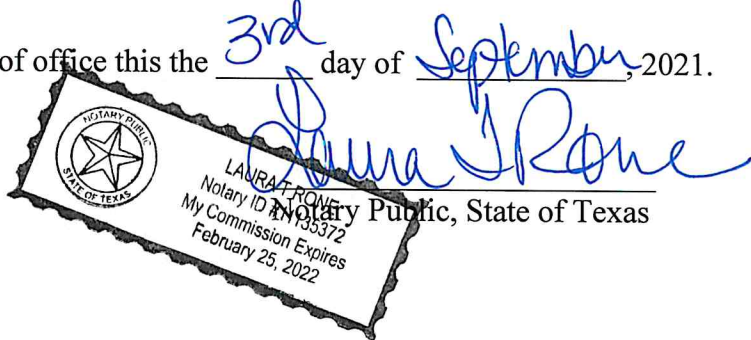 of office this the 3rd day of September, 2021.
Laura T Rone
Notary Public, State of Texas
NOTARY PUBLIC
STATE OF TEXAS
LAURA T RONE
Notary ID
My Commission Expires
February 25, 2022